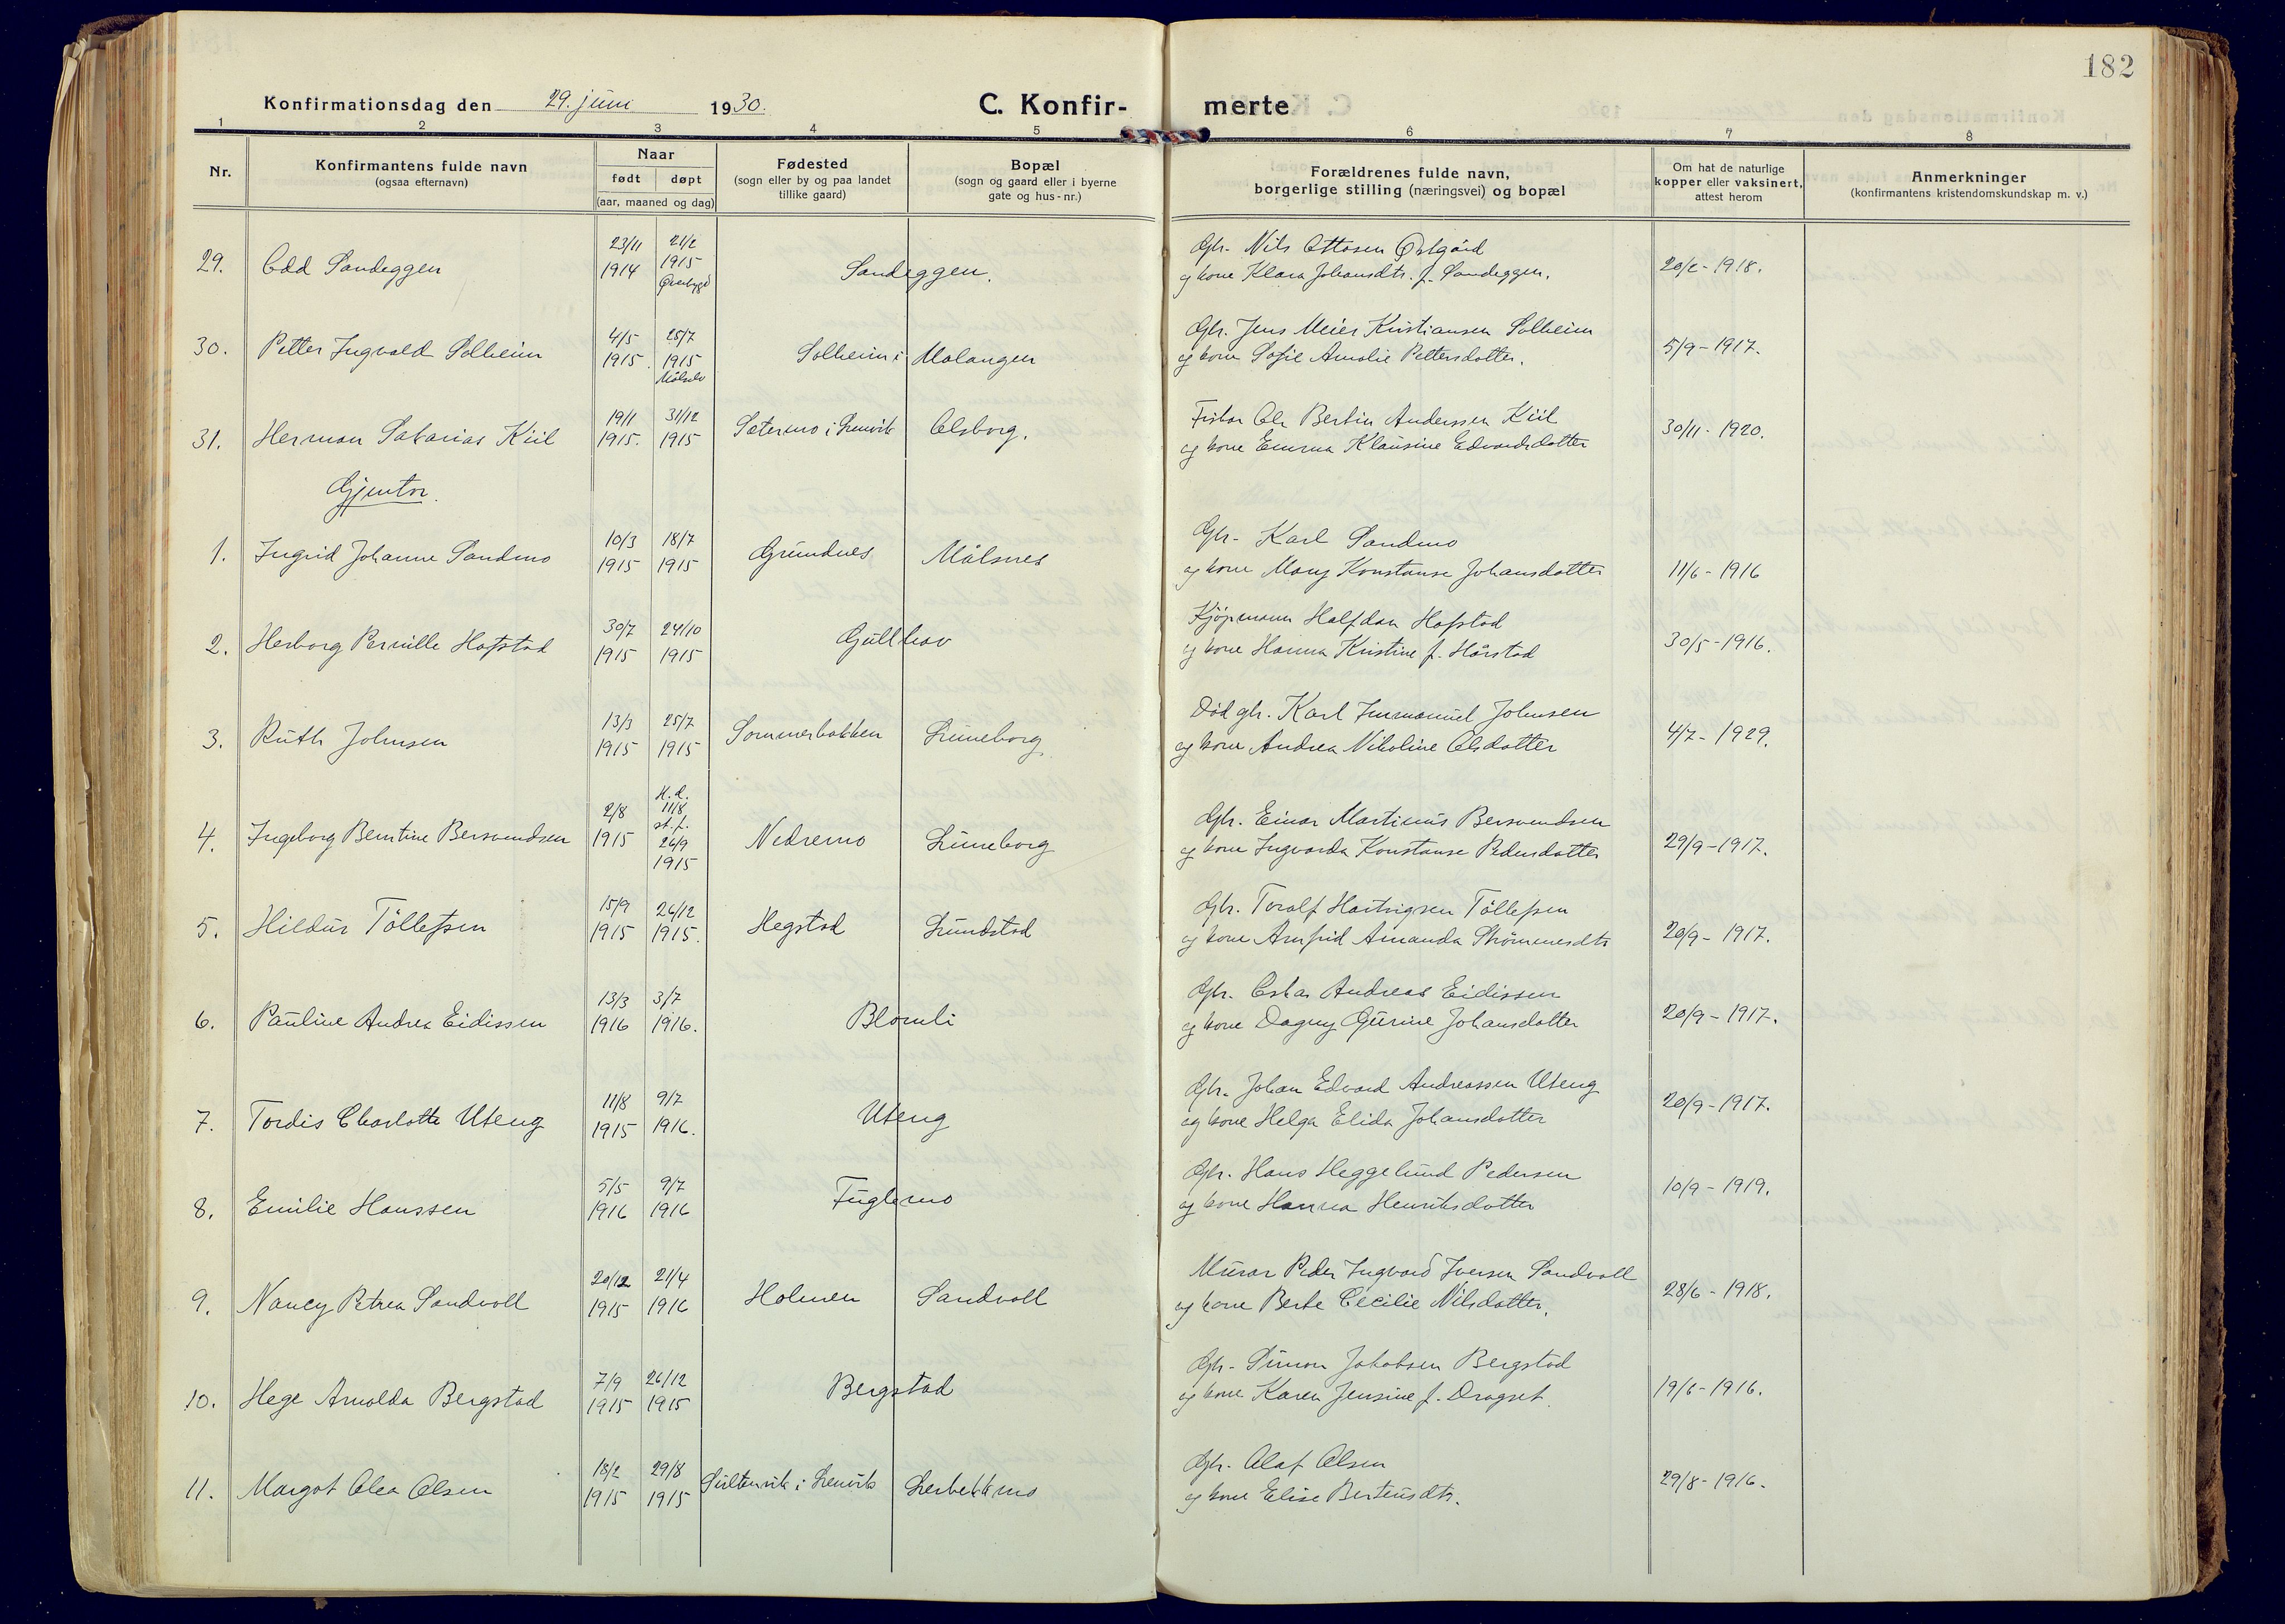 182
Konfirmationsdag den 29. juni 1930. C. Konfir- merte
1 2 3 4 5 6 7 8
Nr.
Konfirmantens fulde navn
(ogsaa efternavn)
Naar
født døpt
(aar, maaned og dag)
Fødested
(sogn eller by og paa landet
tillike gaard)
Bopæl
(sogn og gaard eller i byerne
gate og hus-nr.)
Forældrenes fulde navn,
borgerlige stilling (næringsvei) og bopæl
Om hat de naturlige
kopper eller vaksinert,
attest herom
Anmerkninger
(konfirmantens kristendomskundskap m. v.)
29. Odd Sandeggen 23/11 1914 21/2 1915 Øverbygd Sandeggen. Gbr. Nils Ottosen Østgård
og kone Klara Johansdtr. f. Sandeggen. 20/2-1918.
30. Petter Ingvald Solheim 4/5 1915. 25/7 1915 Målselv Solheim i Malangen Gbr. Jens Meier Kristiansen Solheim
og kone Sofie Amalie Pettersdatter. 5/9-1917.
31. Herman Sakarias Kiil 19/1 1915. 31/12 1915 Sætermo i Lenvik Olsborg. Fisker Ole Bertin Anderssen Kiil
og kone Emma Klausine Edvardsdatter 30/11-1920.
Gjenter.
1. Ingrid Johanne Sandmo 10/3 1915 18/7 1915 Grundnes Målsnes Gbr. Karl Sandmo
og kone Mary Konstanse Johansdatter 11/6-1916
2. Herborg Pernille Hofstad 30/7 1915 24/10 1915 Gullhav Kjøpmann Halfdan Hofstad
og kone Hanna Kristine f. Hårstad 30/5-1916.
3. Ruth Johnsen 13/3 1915 25/7 1915 Sommerbakken Luneborg. Død gbr. Karl Immanuel Johnsen
og kone Andrea Nikoline Olsdatter 4/7-1929.
4. Ingeborg Berntine Bersvendsen 2/8 1915 H.d. 11/8 st.f. 26/9 1915 Nedremo Luneborg Gbr. Einar Martinus Bersvendsen
og kone Ingvarda Konstanse Pedersdatter 29/9-1917.
5. Hildur Tøllefsen 15/9 1915 26/12 1915. Hegstad Lundstad Gbr. Toralf Hartvigsen Tøllefsen
og kone Arnfrid Amanda Strømmesdtr 20/9-1917.
6. Pauline Andrea Eidissen 13/3 1916 3/7 1916. Blomli Gbr. Oskar Andreas Eidissen
og kone Dagny Gurine Johansdatter 20/9-1917.
7. Tordis Charlotte Uteng 11/8 1915 9/7 1916. Uteng Gbr. Johan Edvard Andreassen Uteng
og kone Helga Elida Johansdatter 20/9-1917.
8. Emilie Hanssen 5/5 1916 9/7 1916 Fuglemo Gbr. Hans Heggelund Pedersen
og kone Hanna Henriksdatter 10/9-1919.
9. Nancy Petrea Sandvoll 20/12 1915 21/4 1916 Holmen Sandvoll Murar Peder Ingvard Iversen Sandvoll
og kone Berte Cecilie Nilsdatter. 28/6-1918.
10. Hege Arnolda Bergstad 7/9 1915 26/12 1915 Bergstad Gbr. Simon Jakobsen Bergstad
og kone Karen Jensine f. Dragset. 19/6-1916.
11. Margot Olea Olsen 18/2 1915 29/8 1915 i Lenvik Lerbekkmo Gbr. Olaf Olsen
og kone Elise Berteusdtr. 29/8-1916.